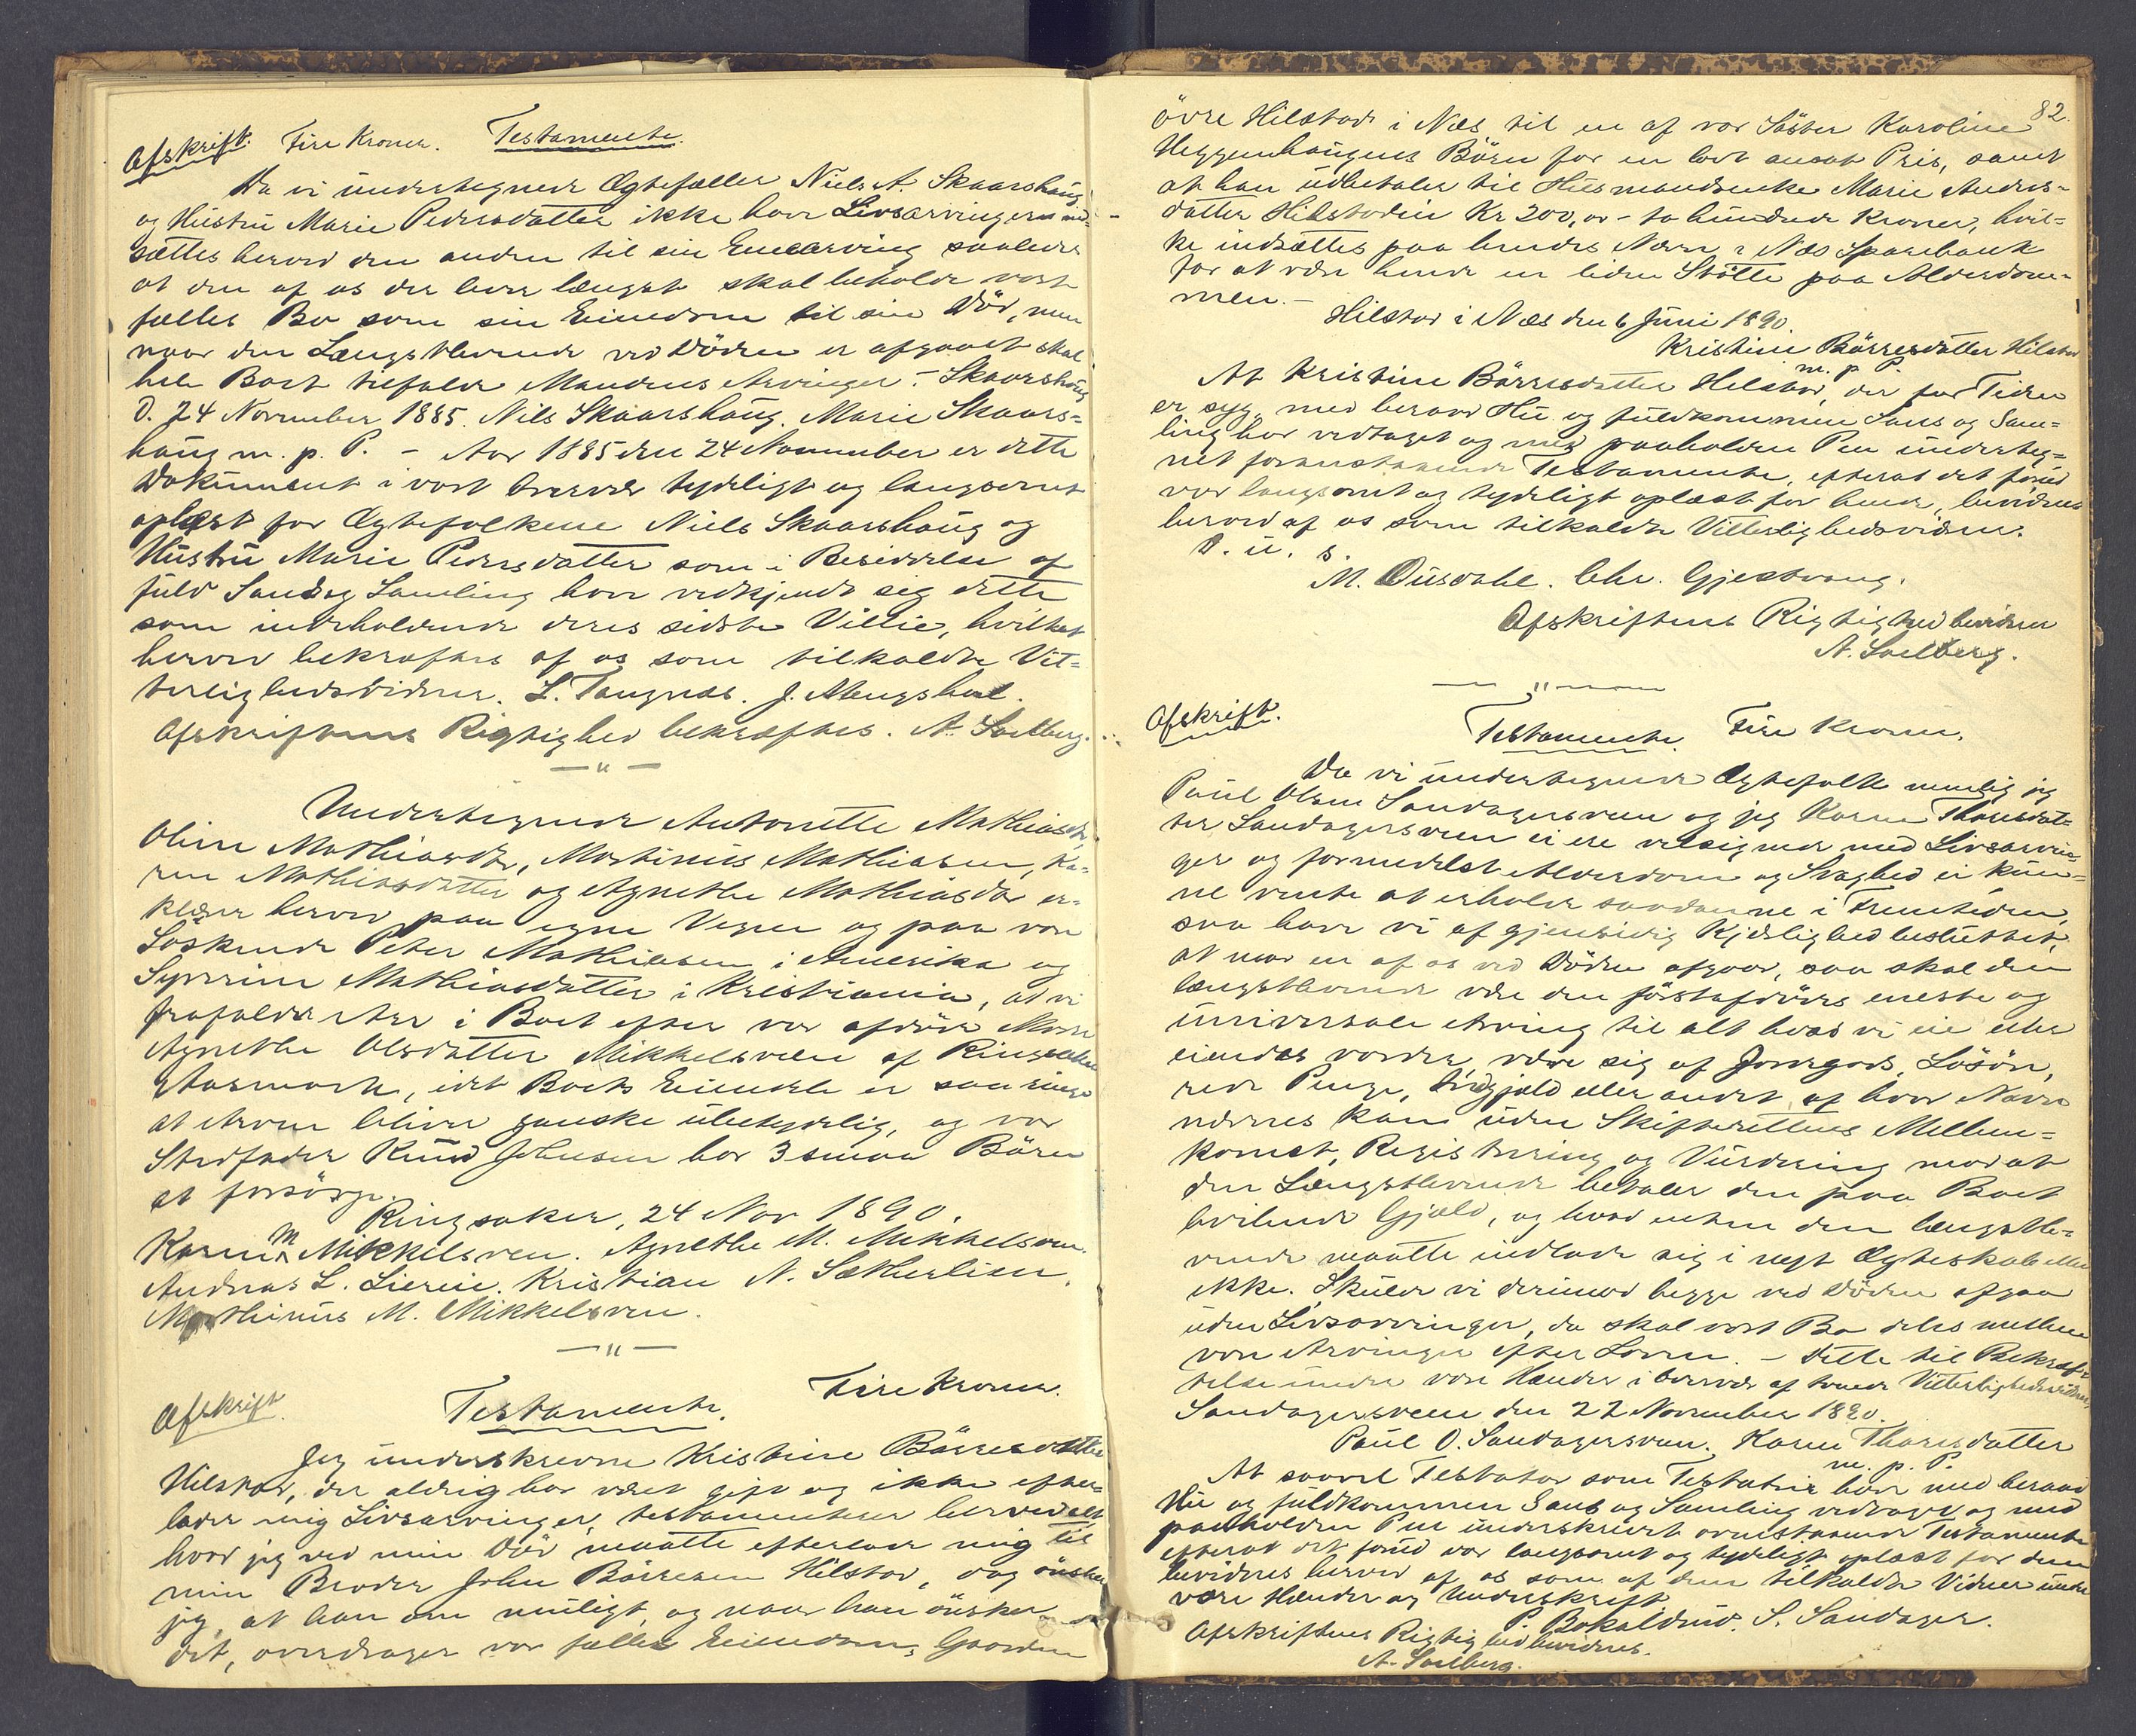 Afskrift. Fire Kroner. Testamente.
Da vi undertegnede Ægtefæller Niels A. Skaarshaug
og Hustru Marie Pedersdatter ikke have Livsarvinger ind-
sættes herved den anden til sin Enearving saaledes
at den af os der lever længst skal beholde vort
fælles Bo som sin Eiendom til sin Død, men
naar den Længstlevende ved Døden er afgaaet skal
hele Boet tilfalde Mandens Arvinger. - Skaarshaug
d. 24 November 1885. Nils Skaarshaug. Marie Skaars=
haug m. p. P. - Aar 1885 den 24 November er dette
Dokument i vort Overvær tydeligt og langsomt
oplæst for Ægtefolkene Niels Skaarshaug og
Hustru Marie Pedersdatter som i Besiddelse af
fuld Sands og Samling have vedkjendt sig dette
som indeholdende deres sidste Villie, hvilket
herved bekræftes af os som tilkaldte Vit=
terlighedsvidner. L. Tangnæs. J. Mengshoel.
Afskriftens Rigtighed bekræftes. A. Soelberg.
— " —
Undertegnede Antonette Mathiasdr,
Oline Mathiasdtr, Martinus Mathiasen, Ka=
ren Mathiasdatter og Agnethe Mathiasdr er=
klærer herved paa egne Vegne og paa vore
Søskende Peter Mathiasen i Amerika og
Syverine Mathiasdatter i Kristiania, at vi
frafalder Arv i Boet efter vor afdøde Moder
Agnethe Olsdatter Mikkelsveen af Ringsaker
Aasmark, idet Boets Eiendele er saa ringe
at Arven bliver ganske ubetydelig, og vor
Stedfader Knud Johnsen har 3 smaa Børn
at forsørge.
Ringsaker, 24 Nov 1890.
Karen M Mikkelsveen. Agnethe M. Mikkelsveen.
Andreas L. Liereie. Kristian N. Sætherlien.
Mathinus M. Mikkelsveen.
— " —
Afskrift. Testamente. Fire Kroner.
Jeg underskrevne Kristine Børresdatter
Hilstad, der aldrig har været gift og ikke efter=
lader mig Livsarvinger, testamenterer herved alt
hvad jeg ved min Død maatte efterlade mig til
min Broder John Børresen Hilstad, dog ønsker
jeg, at han om muligt, og naar han ønsker
det, overdrager vor fælles Eiendom, Gaarden
82.
øvre Hilstad i Næs til en af vor Søster Karoline
Heggenhaugens Børn for en lavt ansat Pris, samt
at han udbetaler til Husmandsenke Marie Anders-
datter Hilstadeie Kr 200,00 - to hundrede Kroner, hvil=
ke indsættes paa hendes Navn i Næs Sparebank
for at være hende en liden Støtte paa Alderdom-
men. -
Hilstad i Næs den 6 Juni 1890.
Kristine Børresdatter Hilstad
m. p. P.
At Kristine Børresdatter Hilstad, der for Tiden
er syg, med beraad Hu og fuldkommen Sans og Sam=
ling har vedtaget og med paaholden Pen underteg=
net foranstaaende Testamente, efterat det forud
var langsomt og tydeligt oplæst for hende, bevidnes
herved af os som tilkaldte Vitterlighedsvidner.
D. u. s.
M. Ousdahl. Chr. Gjestvang.
Afskriftens Rigtighed bevidner
A. Soelberg.
— " —
Afskrift. Testamente. Fire Kroner.
Da vi undertegnede Ægtefolk nemlig jeg
Paul Olsen Sandagersveen og jeg Karen Thoresdat=
ter Sandagersveen ei ere velsignede med Livsarvin=
ger og formedelst Alderdom og Svaghed ei kun=
ne vente at erholde saadanne i Fremtiden,
saa have vi af gjensidig Kjærlighed besluttet,
at naar en af os ved Døden afgaar, saa skal den
længstlevende være den førstafdødes eneste og
universale Arving til alt hvad vi eie eller
eiendes vorder, være sig af Jordegods, Løsøre,
rede Penge, Indgjæld eller andet af hvad Navn
nævnes kan uden Skifterettens Mellem=
komst, Registrering og Vurdering mod at
den Længstlevende betaler den paa Boet
hvilende Gjæld, og hvad enten den længstle=
vende maatte indlade sig i nyt Ægteskab eller
ikke. Skulde vi derimod begge ved Døden afgaa
uden Livsarvinger, da skal vort Bo deles mellem
vore Arvinger efter Loven. - Dette til Bekræf=
telse under vore Hænder i Overvær af tvende Vitterlighedsvidner,
Sandagersveen den 22 November 1890.
Paul O. Sandagersveen. Karen Thoresdatter
m. p. P.
At saavel Testator som Testatrix have med beraad
Hu og fuldkommen Sans og Samling vedtaget og med
paaholden Pen underskrevet ovenstaaende Testamente
efterat det forud var langsomt og tydeligt oplæst for dem
bevidnes herved af os som af dem tilkaldte Vidner under
vore Hænder og Underskrift.
P. Bokaldrud. S. Sandager.
Afskriftens Rigtighed bevidnes.
A. Soelberg.